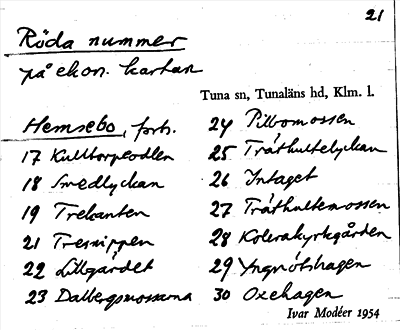 21
Röda nummer
på ekon. kartan
Tuna sn, Tunaläns hd, Klm. l.
Hemsebo, forts.
17 Kulltorpeodlen
18 Smedlyckan
19 Trekanten
21 Tresnippen
22 Lillgärdet
23 Dalbergsmossarna
24 Pilbomossen
25 Tråthultelyckan
26 Intaget
27 Tråthultemossen
28 Kolerakyrkgården
29 Yngnötshagen
30 Oxehagen
Ivar Modéer 1954